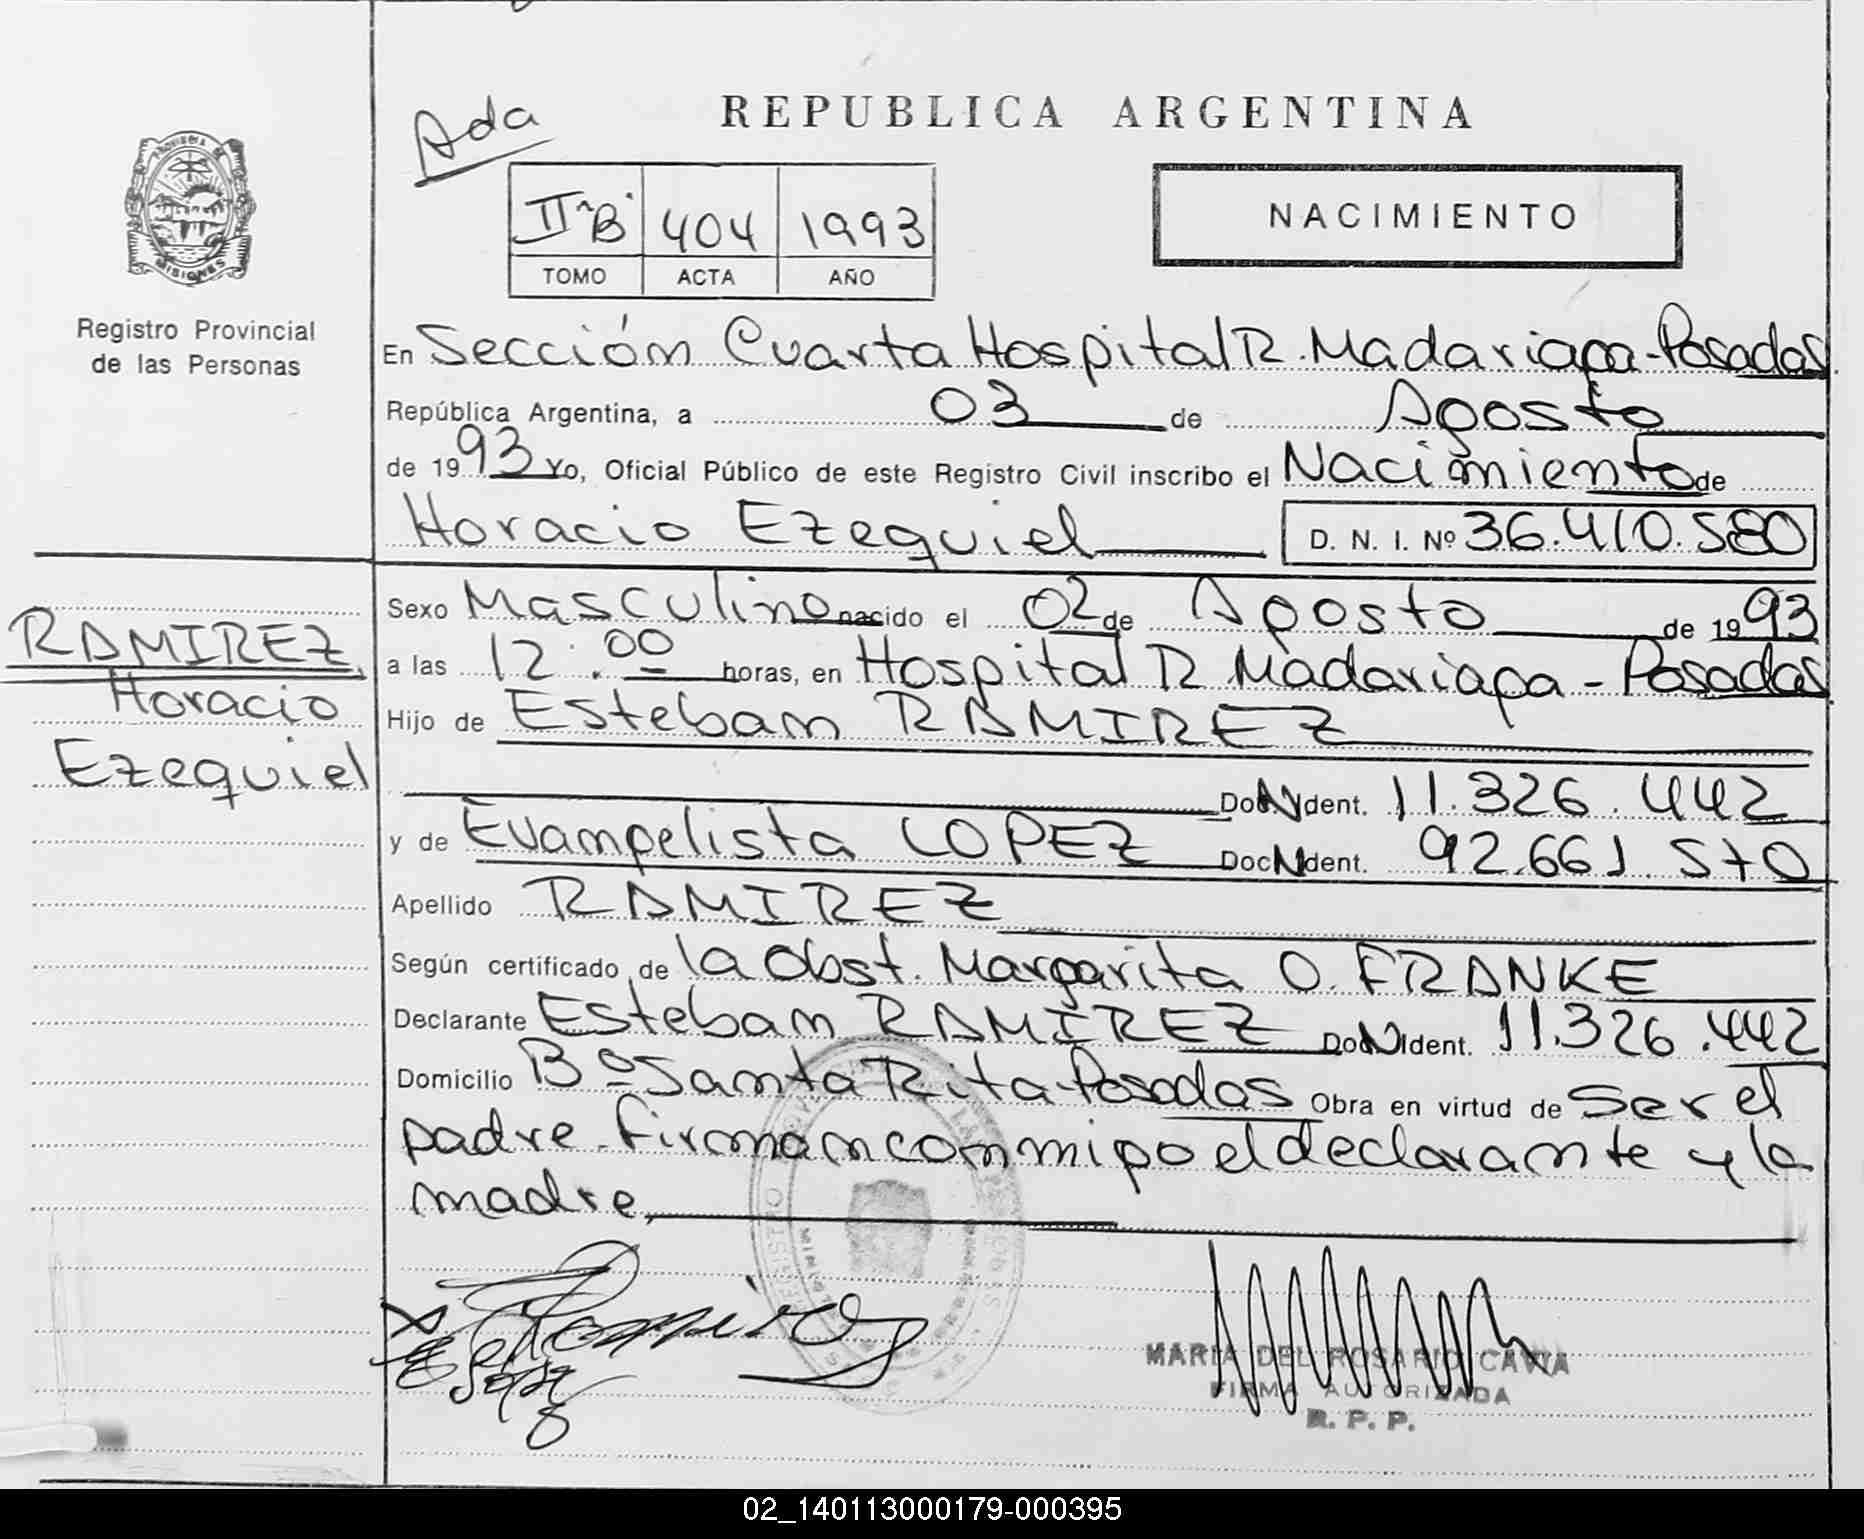 REPUBLICA ARGENTINA
Ada
IIºB 404 1993
TOMO ACTA AÑO
NACIMIENTO
PROVINCIA DE
MISIONES
Registro Provincial
de las Personas
En Sección Cuarta Hospital R. Madariaga-Posadas
República Argentina, a 03 de Agosto
de 1993 Yo, Oficial Público de este Registro Civil inscribo el Nacimiento de
Horacio Ezequiel D. N. I. Nº 36.410.580
RAMIREZ
Horacio
Ezequiel
Sexo Masculino nacido el 02 de Agosto de 1993
a las 12.00 horas, en Hospital R Madariaga - Posadas
Hijo de Esteban RAMIREZ
Doc. Ident. 11.326.442
y de Evangelista LOPEZ Doc. Ident. 92.661.570
Apellido RAMIREZ
Según certificado de la Obst. Margarita O. FRANKE
Declarante Esteban RAMIREZ Doc. Ident. 11.326.442
Domicilio Bº Santa Rita-Posadas Obra en virtud de Ser el
padre. Firman conmigo el declarante y la
madre.
MARIA DEL ROSARIO CAVIA
FIRMA AUTORIZADA
R. P. P.
02_140113000179-000395